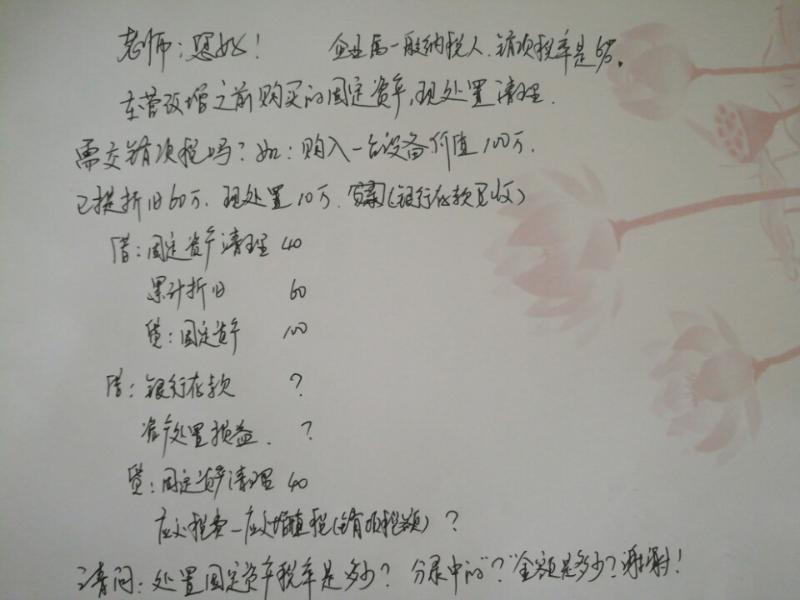 老师：您好！ 企业属一般纳税人、销项税率是6%。
在营改增之前购买的固定资产，现处置清理.
需交销项税吗？如：购入一台设备价值100万.
已提折旧60万.现处置10万.(银行存款已收)
借：固定资产清理 40
累计折旧 60
贷：固定资产 100
借：银行存款 ？
资产处置损益. ？
贷：固定资产清理 40
应交税费—应交增值税(销项税额) ？
请问：处置固定资产税率是多少？分录中的"？"金额是多少？谢谢！